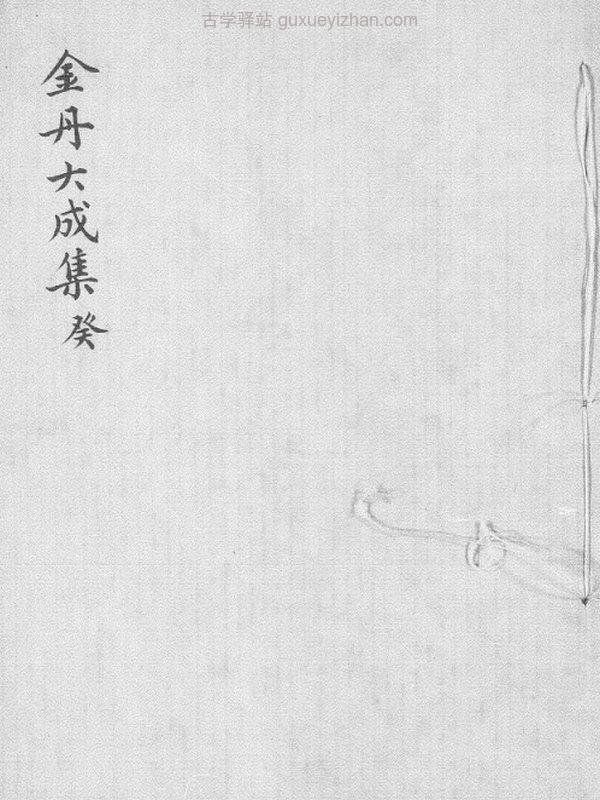 古学驿站 guxueyizhan.com
金丹大成集 癸